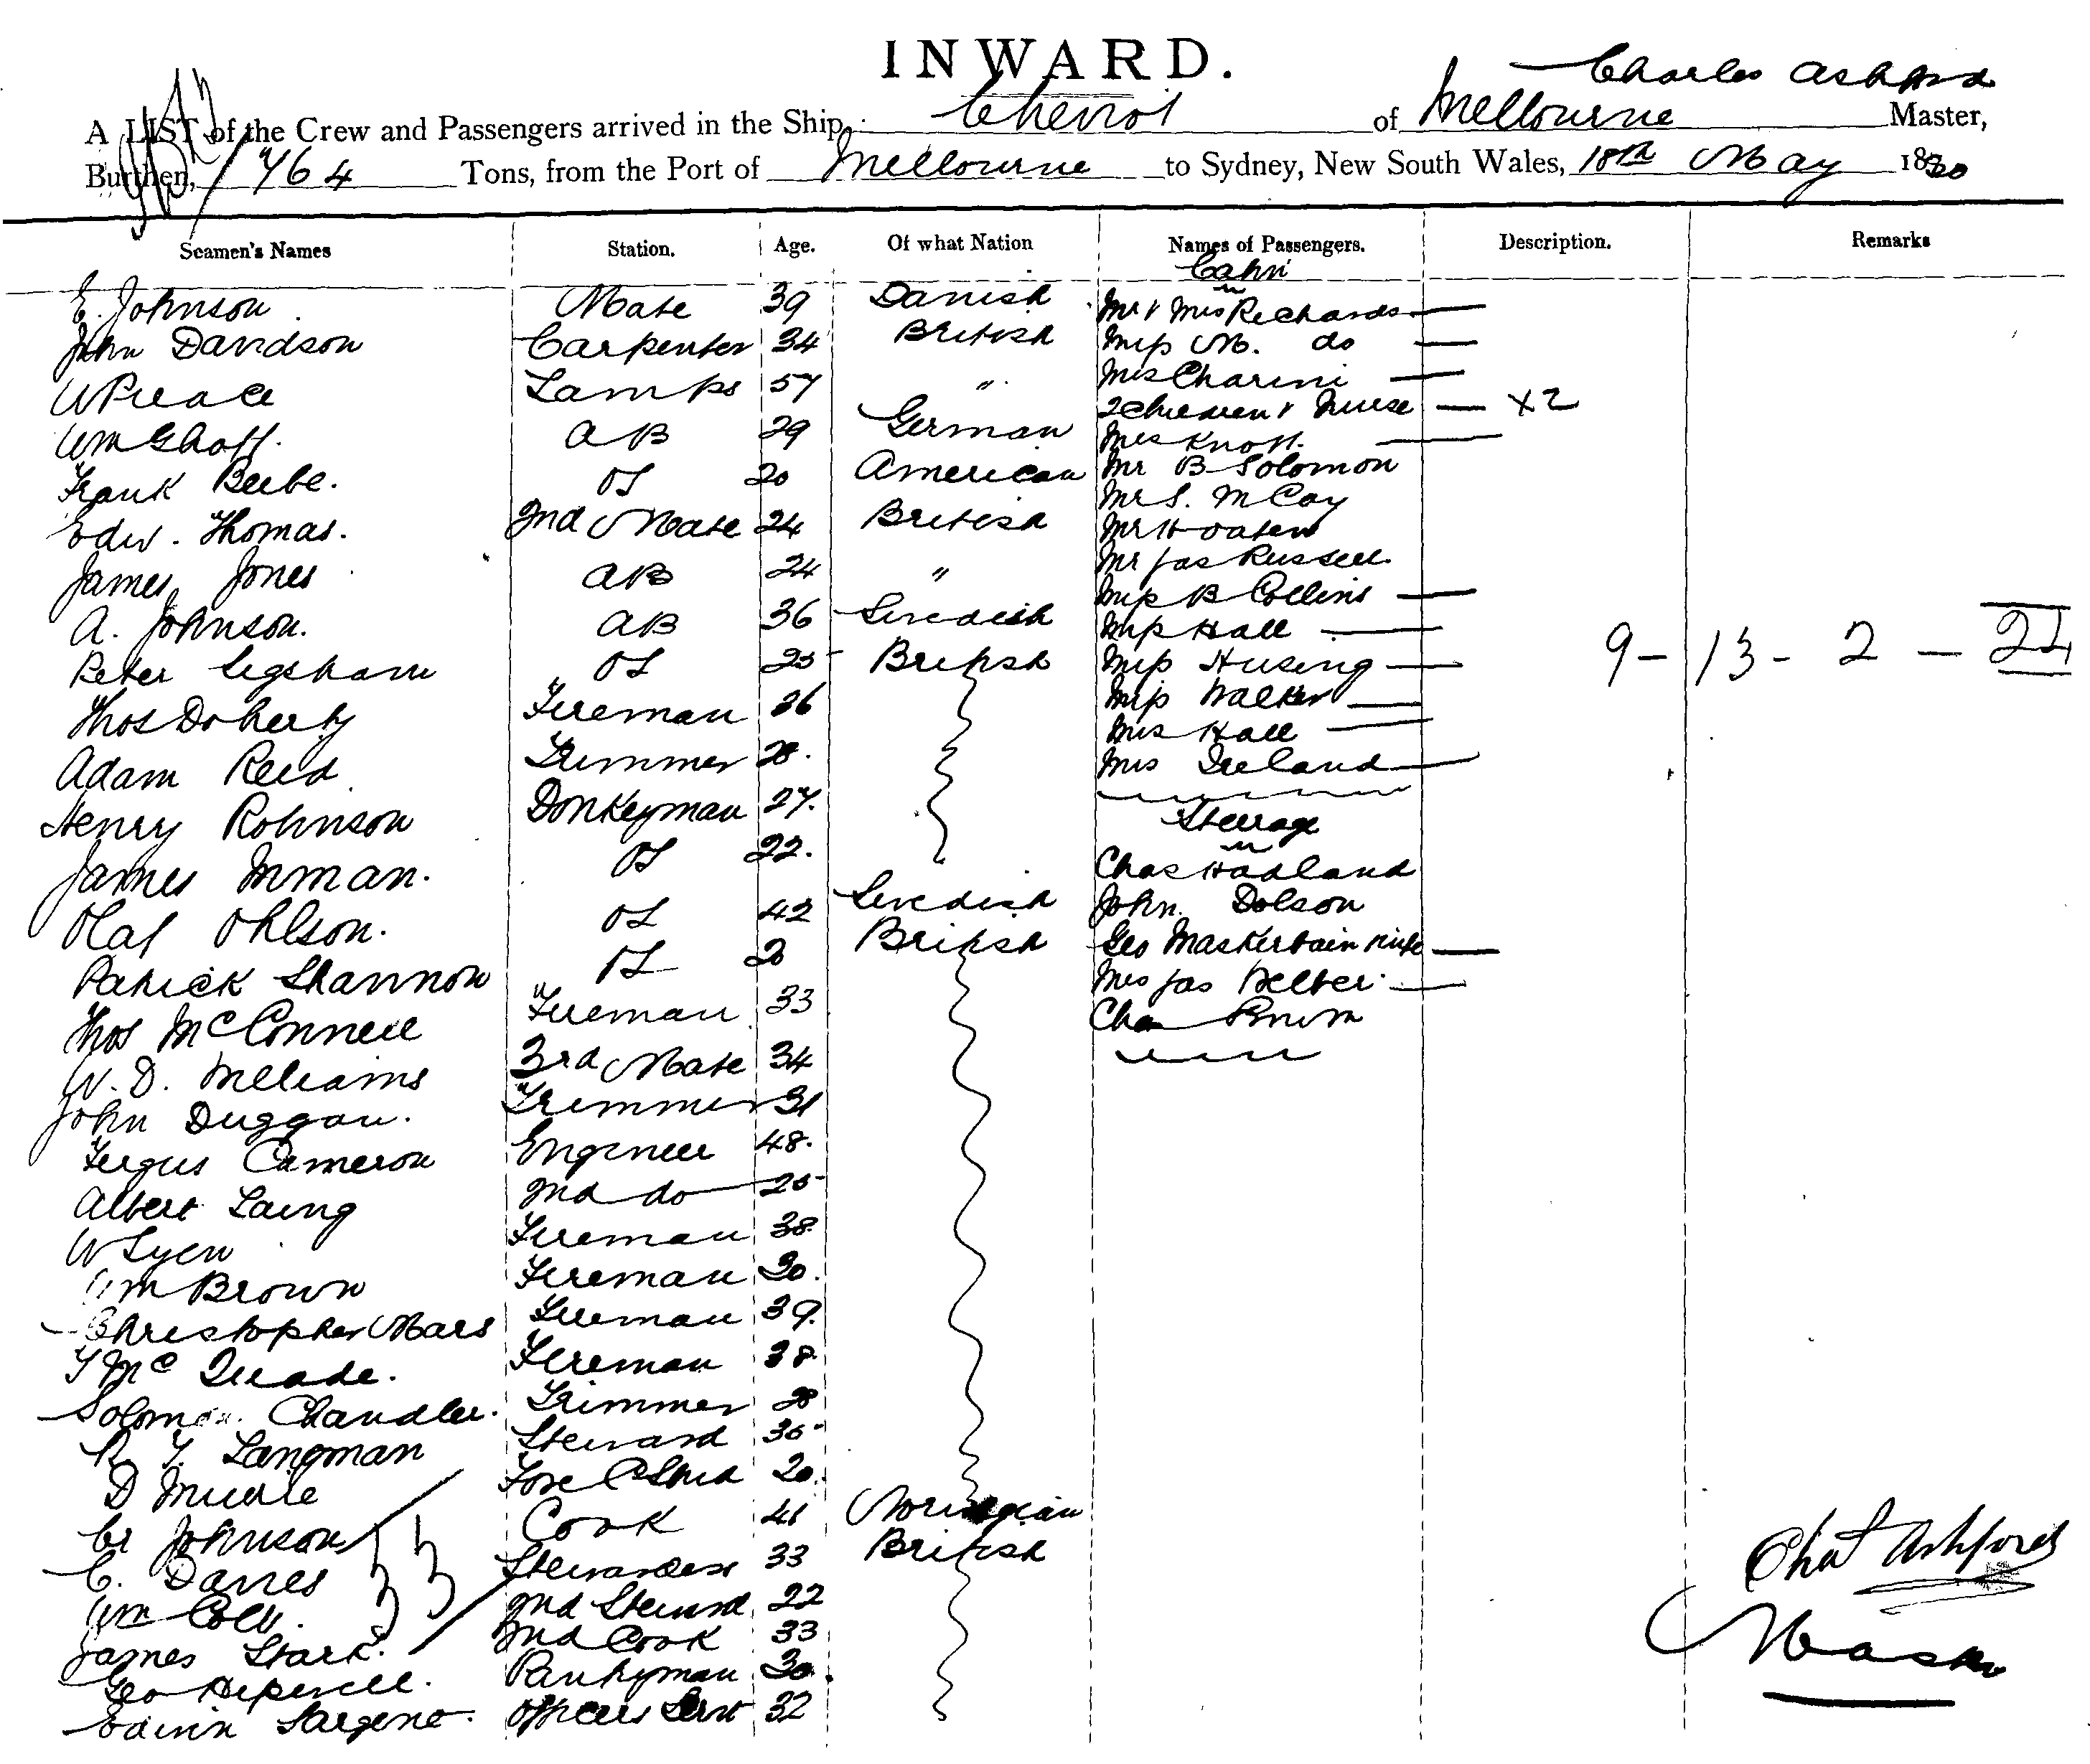 INWARD.
Charles Ashford
A LIST of the Crew and Passengers arrived in the Ship, Cheviot of Melbourne Master,
Burthen, 764 Tons, from the Port of Melbourne to Sydney, New South Wales, 18th May 1880
Seamen's Names Station. Age. Of what Nation Names of Passengers. Description. Remarks
Cabin
E. Johnson Mate 39 Danish Mr & Mrs Richards —
John Davidson Carpenter 34 British Miss M. do —
W Peace Lamps 57 " Mrs Charini —
2 Children & Nurse — X2
Wm Ghoff. AB 29 German Mrs Knott —
Frank Beebe. OS 20 American Mr B Solomon
Mr S. McCoy
Edw. Thomas. 2nd Mate 24 British Mr H Oaten
James Jones AB 24 " Mr Jas Russell
Miss B Collins —
A. Johnson. AB 36 Swedish Miss Hall —
Peter OS 25 British Miss Huseng —
9 - 13 - 2 - 24
Thos Doherty Fireman 36 Miss Walker —
Mrs Hall —
Adam Reid Trimmer 28. Mrs Ireland —
Henry Robinson Donkeyman 27. Steerage
James Inman. OS 22. Chas Hadland
Olaf Ohlson. OS 42 Swedish John Dolson
Patrick Shannon OS 20 British Geo Maskerbain wife —
Mrs Jas Belber —
Thos McConnell Fireman 33 Chas
W. D. Williams 3rd Mate 34
John Duggan. Trimmer 31
Fergus Cameron Engineer 48.
Albert Laing 2nd do 25
W Lyen Fireman 38
Wm Brown Fireman 30.
Christopher Mars Fireman 39.
T McQuade. Fireman 38
Solomon Chandler. Trimmer 28
R. T. Langman Steward 35
D Mudie Fore C Stwd 20.
Cr Johnson Cook 41 Norwegian
C. Davies Stewardess 33 British
Wm Cole. 2nd Steward 22
James Stark. 2nd Cook 33
Geo Hepwell. Pantryman 30.
Edwin Sargent. Officers Servt 32
33
Chas Ashford
Master